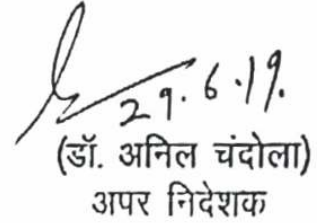 29.6.19.
(डॉ. अनिल चंदोला)
अपर निदेशक